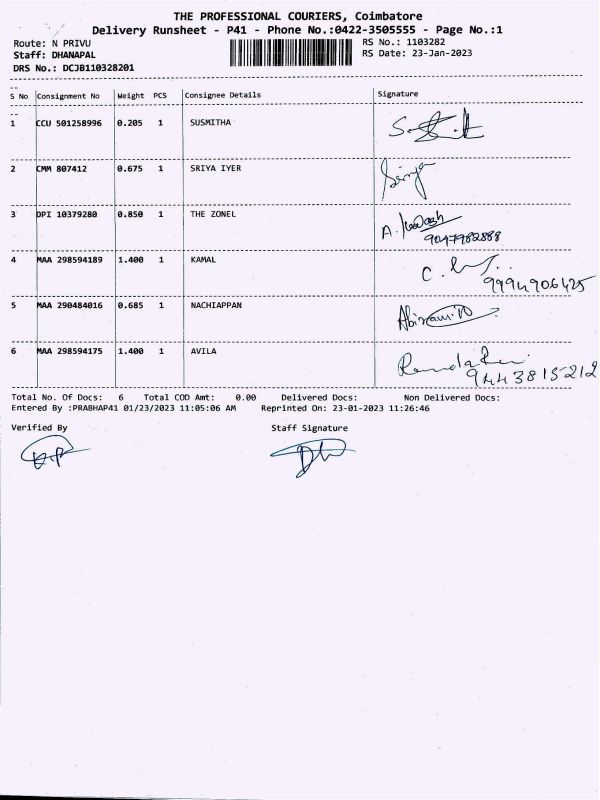 THE PROFESSIONAL COURIERS, Coimbatore
Delivery Runsheet - P41 - Phone No.:0422-3505555 - Page No.:1
Route: N PRIVU RS No.: 1103282
Staff: DHANAPAL RS Date: 23-Jan-2023
DRS No.: DCJB110328201
S No Consignment No Weight PCS Consignee Details Signature
1 CCU 501258996 0.205 1 SUSMITHA
2 CMM 807412 0.675 1 SRIYA IYER
3 DPI 10379280 0.850 1 THE ZONEL A.
9047982888
4 MAA 298594189 1.400 1 KAMAL C.
9994906425
5 MAA 290484016 0.685 1 NACHIAPPAN
6 MAA 298594175 1.400 1 AVILA
9443815212
Total No. Of Docs: 6 Total COD Amt: 0.00 Delivered Docs: Non Delivered Docs:
Entered By :PRABHAP41 01/23/2023 11:05:06 AM Reprinted On: 23-01-2023 11:26:46
Verified By Staff Signature